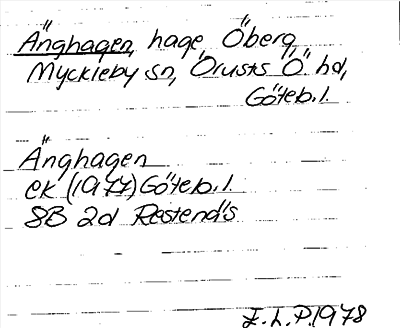 Änghagen, hage Öberg,
Myckleby sn, Örusts Ö. hd,
Göteb.l.
Änghagen
ek (1977) Göteb.l.
8B 2d Restenäs
E.L.P.1978